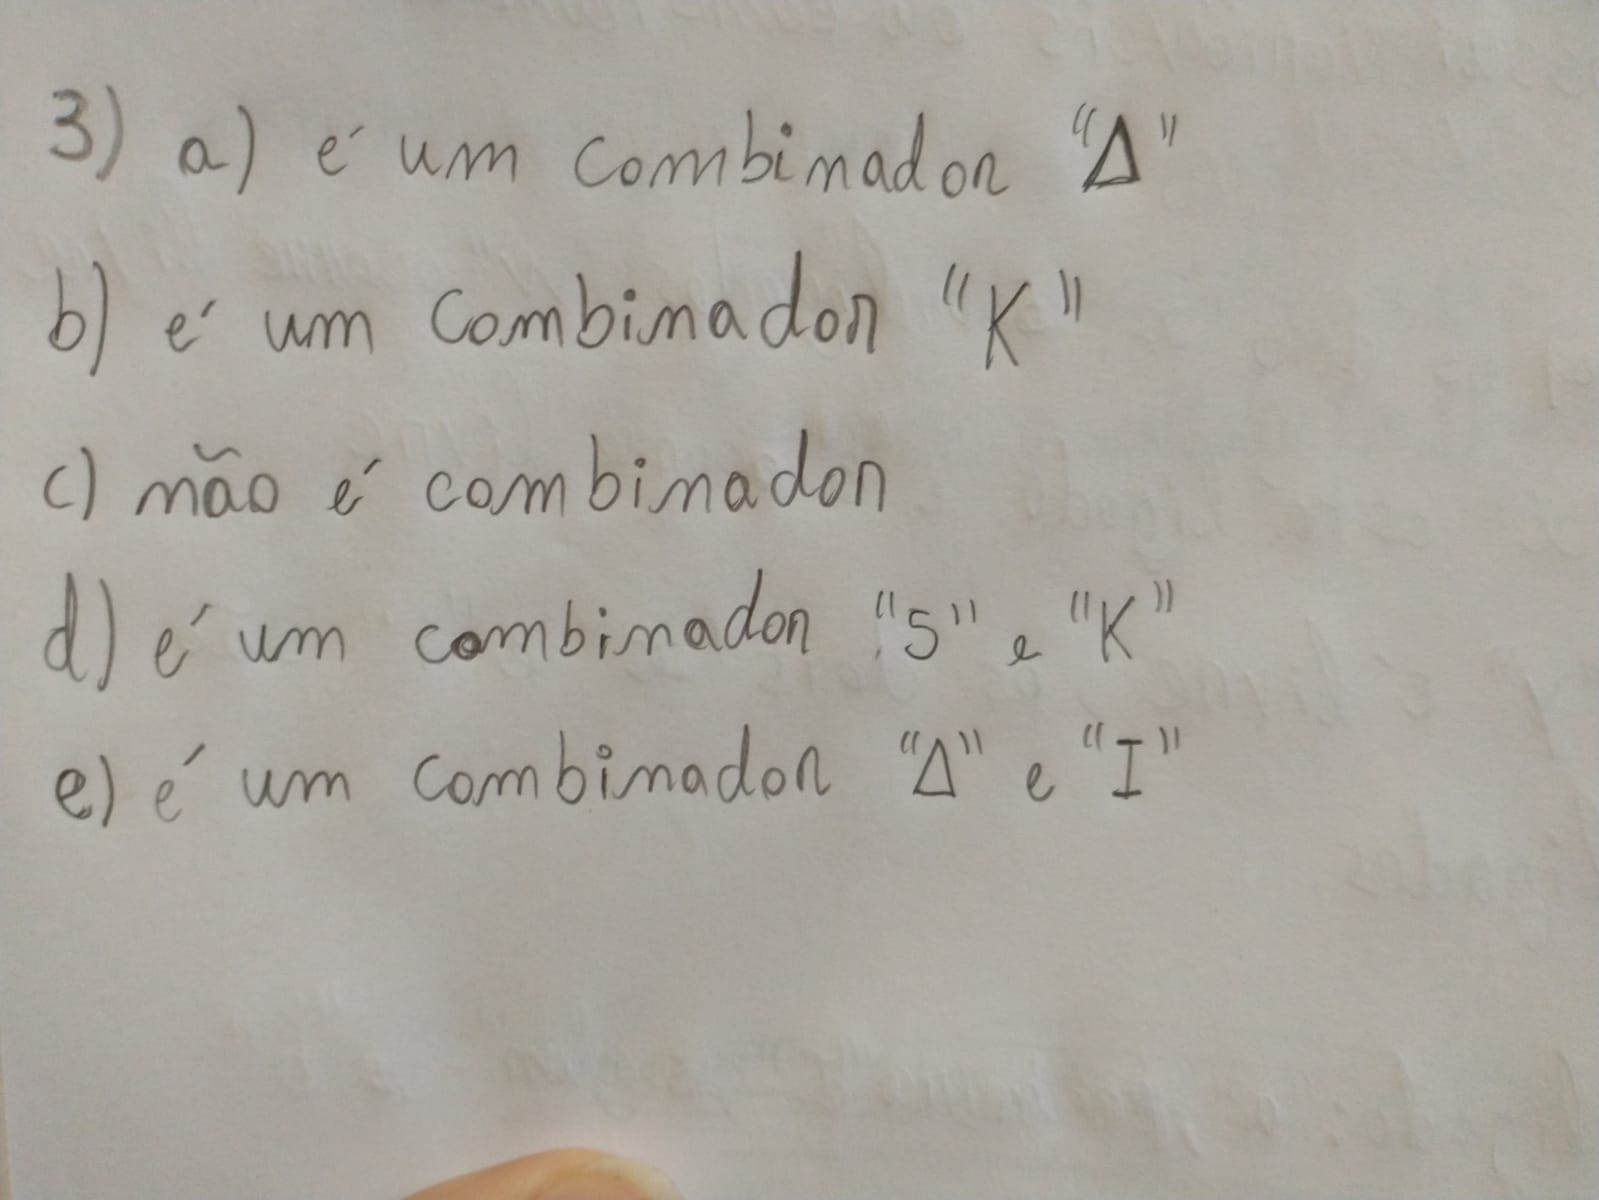 3) a) é um combinador "Δ"
b) é um combinador "K"
c) não é combinador
d) é um combinador "S" e "K"
e) é um combinador "Δ" e "I"